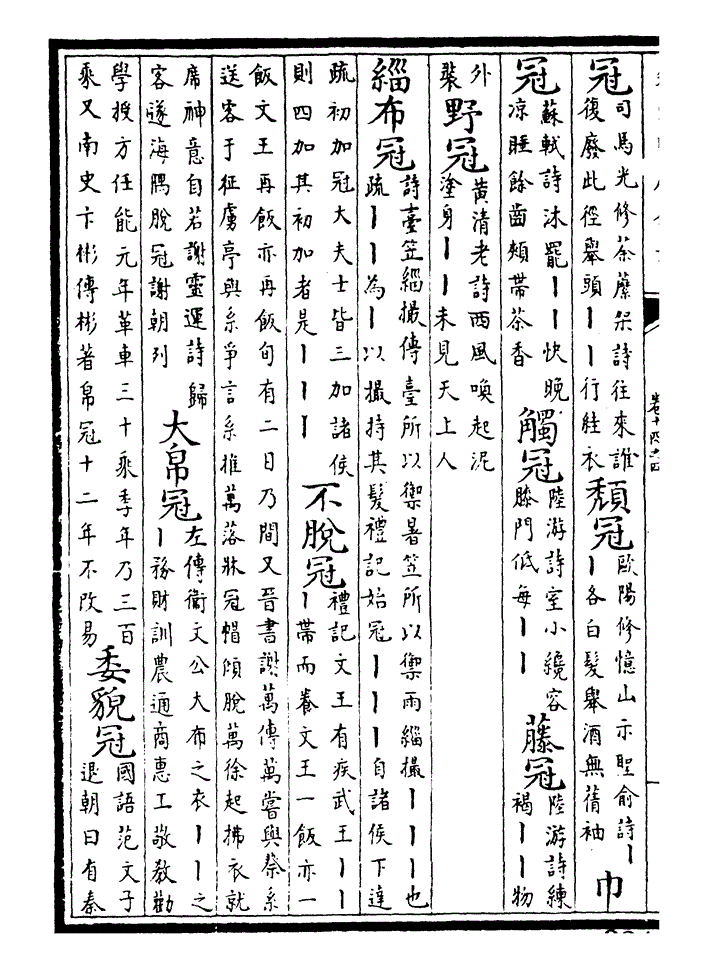 冠
司馬光修荼蘼架詩往來誰
復廢此徑舉頭丨丨行絓衣
頹冠
歐陽修憶山示聖俞詩丨
丨各白髮舉酒無蒨袖
巾
冠
蘇軾詩沐罷丨丨快晚
涼睡餘齒頰帶茶香
觸冠
陸游詩室小纔容
膝門低每丨丨
藤冠
陸游詩練
褐丨丨物
外
裝
野冠
黃清老詩西風喚起泥
塗身丨丨未見天上人
緇布冠
詩臺笠緇撮傳臺所以禦暑笠所以禦雨緇撮丨丨丨也
疏丨丨為丨以撮持其髮禮記始冠丨丨丨自諸侯下達
疏初加冠大夫士皆三加諸侯
則四加其初加者是丨丨丨
不脫冠
禮記文王有疾武王丨丨
丨帶而養文王一飯亦一
飯文王再飯亦再飯旬有二日乃間又晉書謝萬傳萬嘗與蔡系
送客于征虜亭與系爭言系推萬落牀冠帽傾脫萬徐起拂衣就
席神意自若謝靈運詩歸
客遂海隅脫冠謝朝列
大帛冠
左傳衛文公大布之衣丨丨之
丨務財訓農通商惠工敬教勸
學授方任能元年革車三十乘季年乃三百
乘又南史卞彬傳彬著帛冠十二年不改易
委貌冠
國語范文子
退朝曰有秦